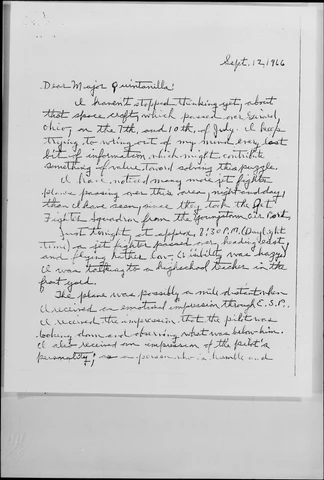 Sept. 12, 1966
Dear Major Quintanilla:
I haven't stopped thinking yet, about
that space craft, which passed over Girard,
Ohio, on the 7th, and 10th, of July. I keep
trying to wring out of my mind every last
bit of information which might contribute
something of value toward solving this puzzle.
I have noticed many more jet fighter
planes passing over this area, night and day,
than I have seen, since they took the Jet
Fighter Squadron from the Youngstown Air Port.
Just tonight, at approx. 7:30 P.M. (Daylight
Time) a jet fighter passed over, heading east
and flying rather low, (visibility was hazy)
I was talking to a highschool teacher in the
front yard.
The plane was possibly a mile distant when
I received an emotional impression through E.S.P..
I received the impression that the pilot was
looking down and observing what was below him.
I also received an impression of the pilot's
personality; as a person who is humble and